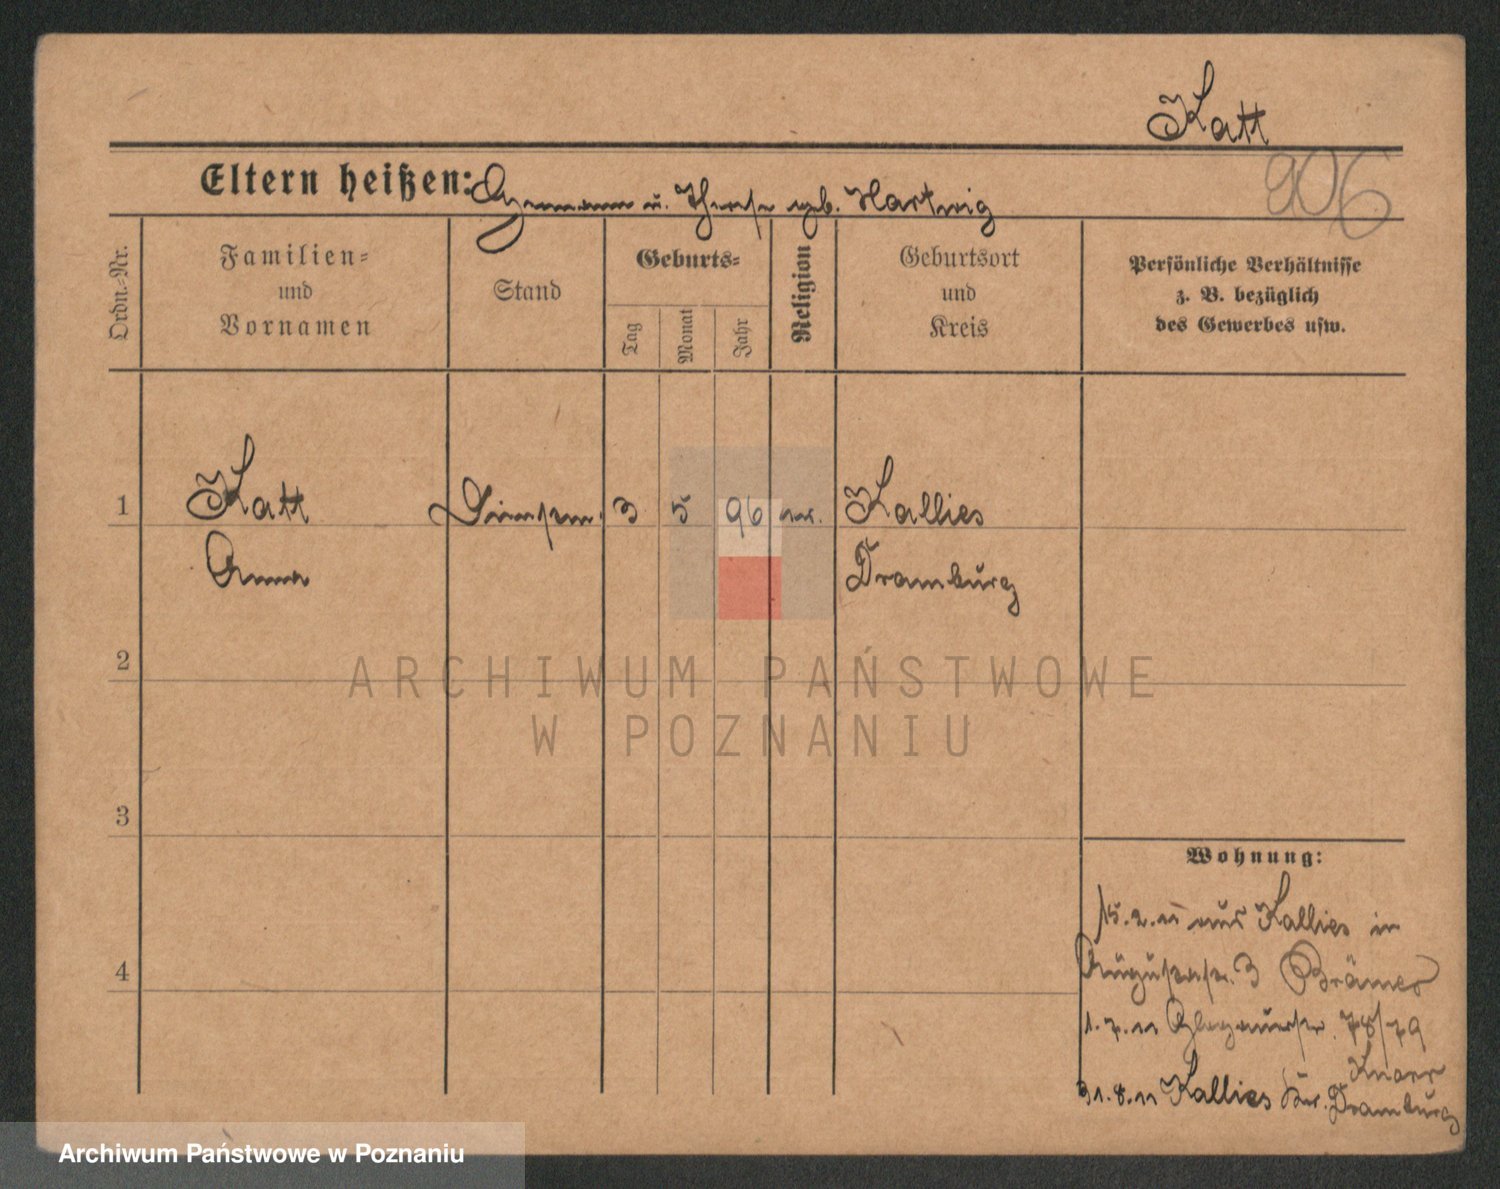 Katt
906
Eltern heißen: Hermann u. Therese geb. Hartwig
Ordn.-Nr.
Familien-
und
Vornamen
Stand
Geburts-
Tag
Monat
Jahr
Religion
Geburtsort
und
Kreis
Persönliche Verhältnisse
z. B. bezüglich
des Gewerbes usw.
1
Katt
3
5
96
ev.
Kallies
Anna
Dramburg
2
ARCHIWUM PAŃSTWOWE
W POZNANIU
3
4
Wohnung:
15.2.11 aus Kallies in
Augustastr. 3 Brämer
1.7.11 Glogauerstr. 78/79
Knorr
31.8.11 Kallies Kr. Dramburg
Archiwum Państwowe w Poznaniu